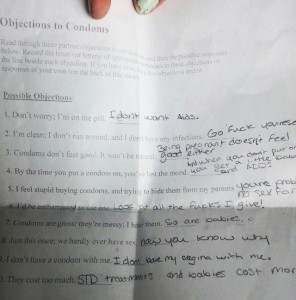 Objections to Condoms
Read through these partner objections
below. Record the letter (or letters) of appropriate
the line beside each objection. If you have
responses of your own (on the back of this
Possible Objections:
1. Don't worry; I'm on the pill. I don't want Aids.
2. I'm clean; I don't run around, and I don't have any infections. Go fuck yourself
Being pregnant doesn't feel
3. Condoms don't feel good. It won't be natural. good either
4. By the time you put a condom on, you've lost the mood. but when you don't put on
you get a little baby
and AIDS.
5. I feel stupid buying condoms, and trying to hide them from my parents you're
no sex for
6. I'd be embarrassed to use Look at all the fucks I give!
7. Condoms are gross; they're messy; I hate them. So are babies.
8. Just this once; we hardly ever have sex. now you know why
9. I don't have a condom with me. I don't have my vagina with me.
They cost too much. STD treatments and babies cost more